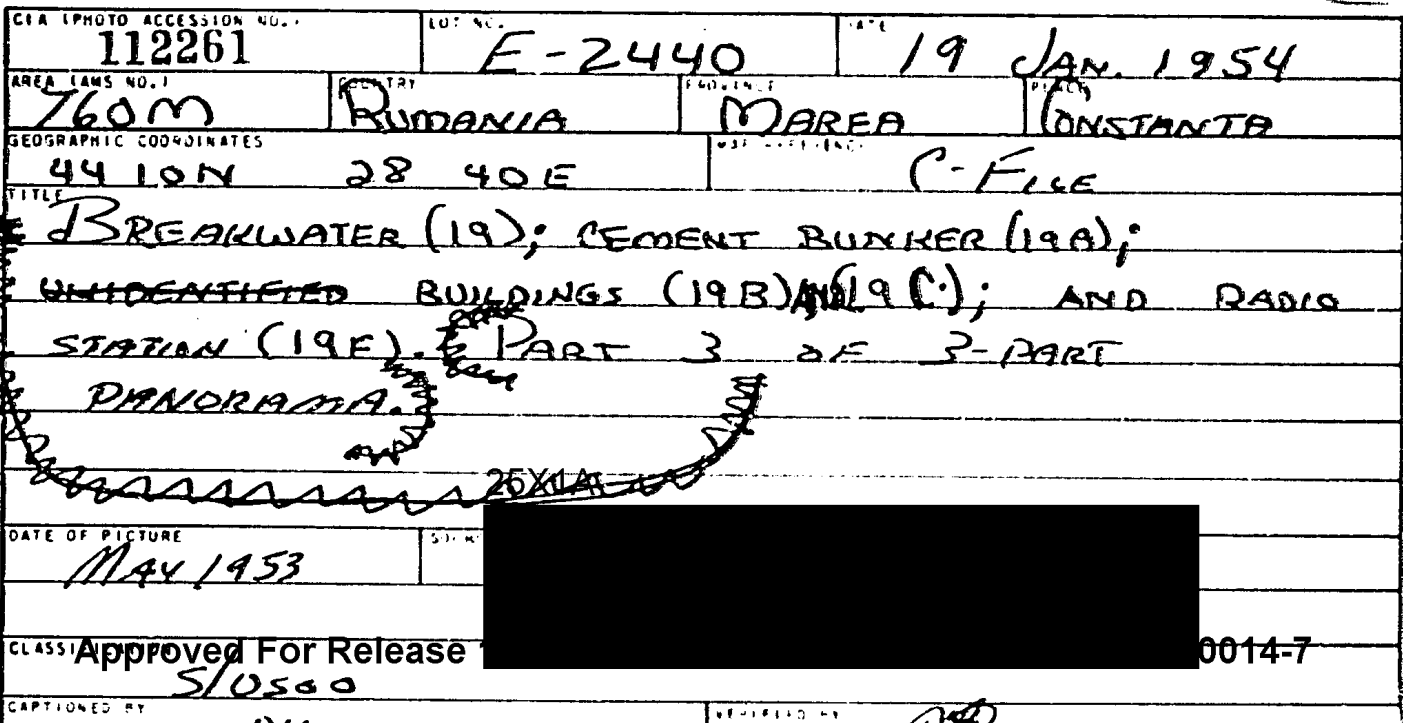 CIA (PHOTO ACCESSION NO.) LOT NO. DATE
112261 E-2440 19 JAN. 1954
AREA (AMS NO.) COUNTRY PROVINCE PLACE
760M RUMANIA MAREA CONSTANTA
GEOGRAPHIC COORDINATES MAP REFERENCE
44 10N 28 40E C-FILE
TITLE
BREAKWATER (19); CEMENT BUNKER (19A);
UNIDENTIFIED BUILDINGS (19B) AND (19C); AND RADIO
STATION (19E). PART 3 OF 3-PART
PANORAMA.
25X1A
DATE OF PICTURE
MAY 1953
Approved For Release 0014-7
S/USOO
CAPTIONED BY VERIFIED BY